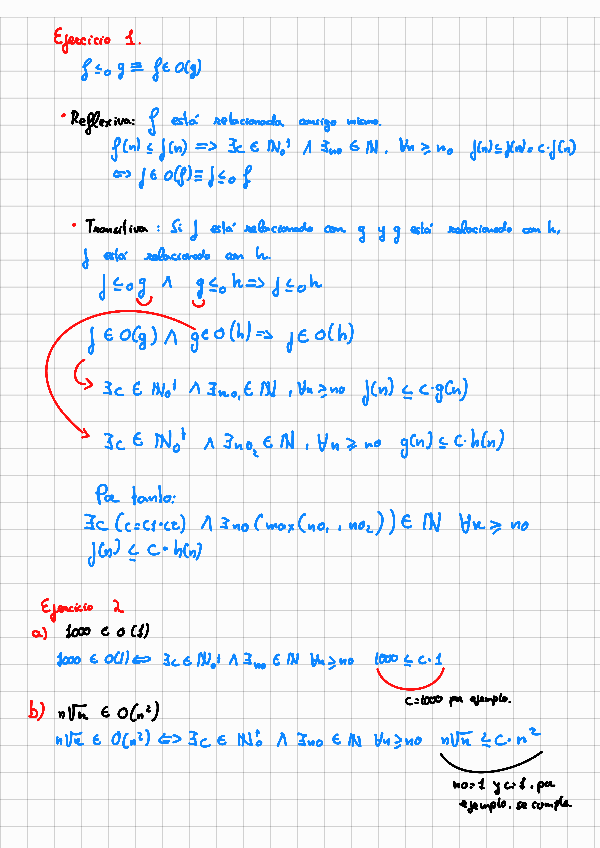 Ejercicio 1.
f ≤₀ g ≡ f ∈ O(g)
• Reflexiva: f está relacionada consigo misma.
f(n) ≤ f(n) => ∃c ∈ ℕ₀⁺ ∧ ∃n₀ ∈ ℕ, ∀n ≥ n₀ f(n) ≤ f(n) · c · f(n)
<=> f ∈ O(f) ≡ f ≤₀ f
• Transitiva: Si f está relacionado con g y g está relacionado con h,
f está relacionado con h.
f ≤₀ g ∧ g ≤₀ h => f ≤₀ h
f ∈ O(g) ∧ g ∈ O(h) => f ∈ O(h)
∃c ∈ ℕ₀⁺ ∧ ∃n₀₁ ∈ ℕ, ∀n ≥ n₀ f(n) ≤ c·g(n)
∃c ∈ ℕ₀⁺ ∧ ∃n₀₂ ∈ ℕ, ∀n ≥ n₀ g(n) ≤ c·h(n)
Por tanto:
∃c (c=c1·c2) ∧ ∃n₀ (max(n₀₁, n₀₂)) ∈ ℕ ∀n ≥ n₀
f(n) ≤ c · h(n)
Ejercicio 2
a) 1000 ∈ O(1)
1000 ∈ O(1) <=> ∃c ∈ ℕ₀⁺ ∧ ∃n₀ ∈ ℕ ∀n ≥ n₀ 1000 ≤ c·1
c=1000 por ejemplo.
b) n√n ∈ O(n²)
n√n ∈ O(n²) <=> ∃c ∈ ℕ₀⁺ ∧ ∃n₀ ∈ ℕ ∀n ≥ n₀ n√n ≤ c·n²
n₀=1 y c=1, por
ejemplo, se cumple